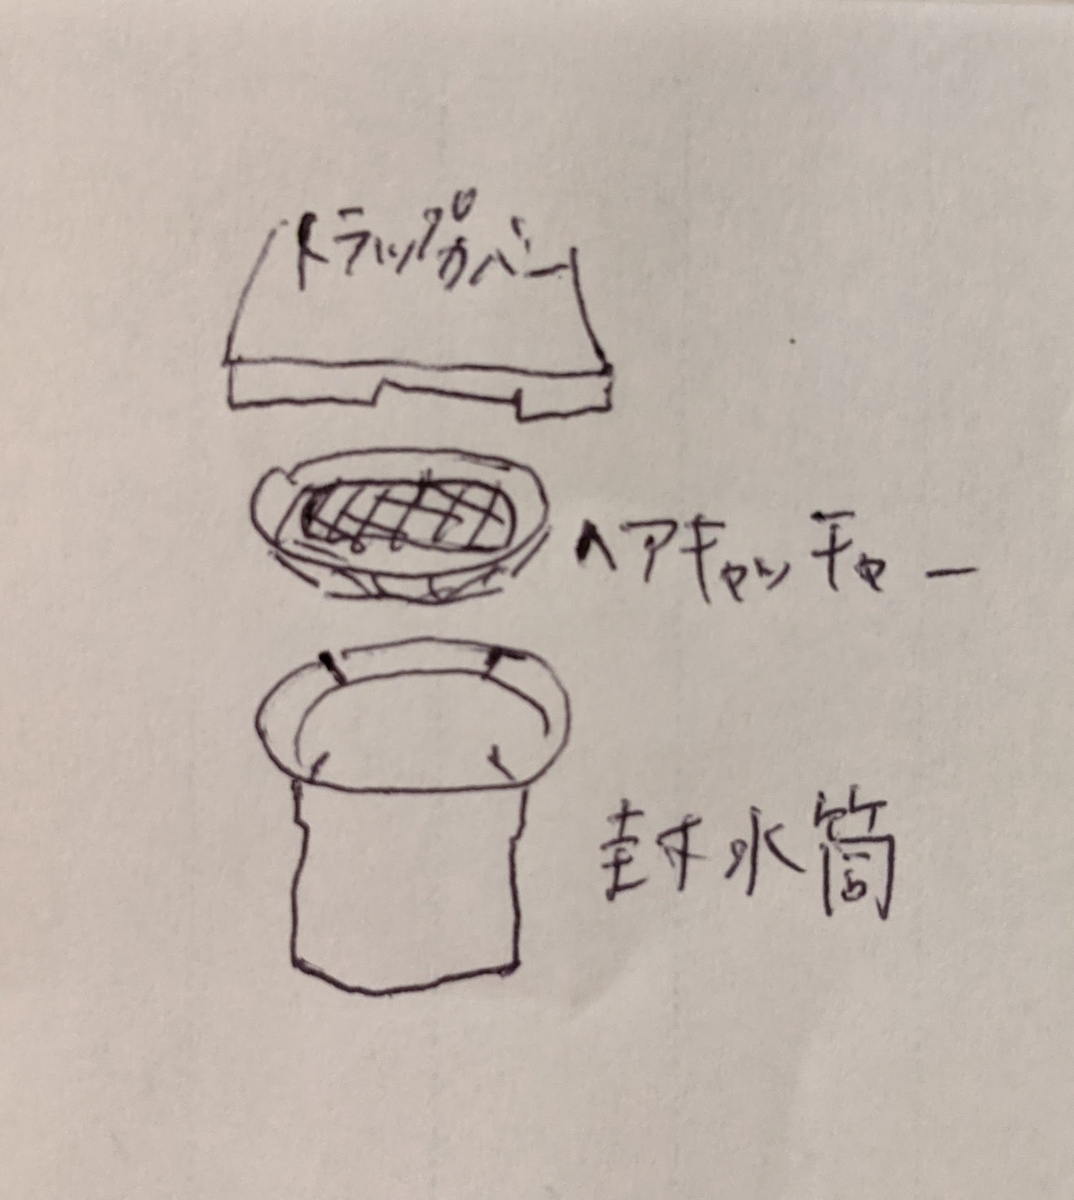 トラップカバー
ヘアキャッチャー
封水筒